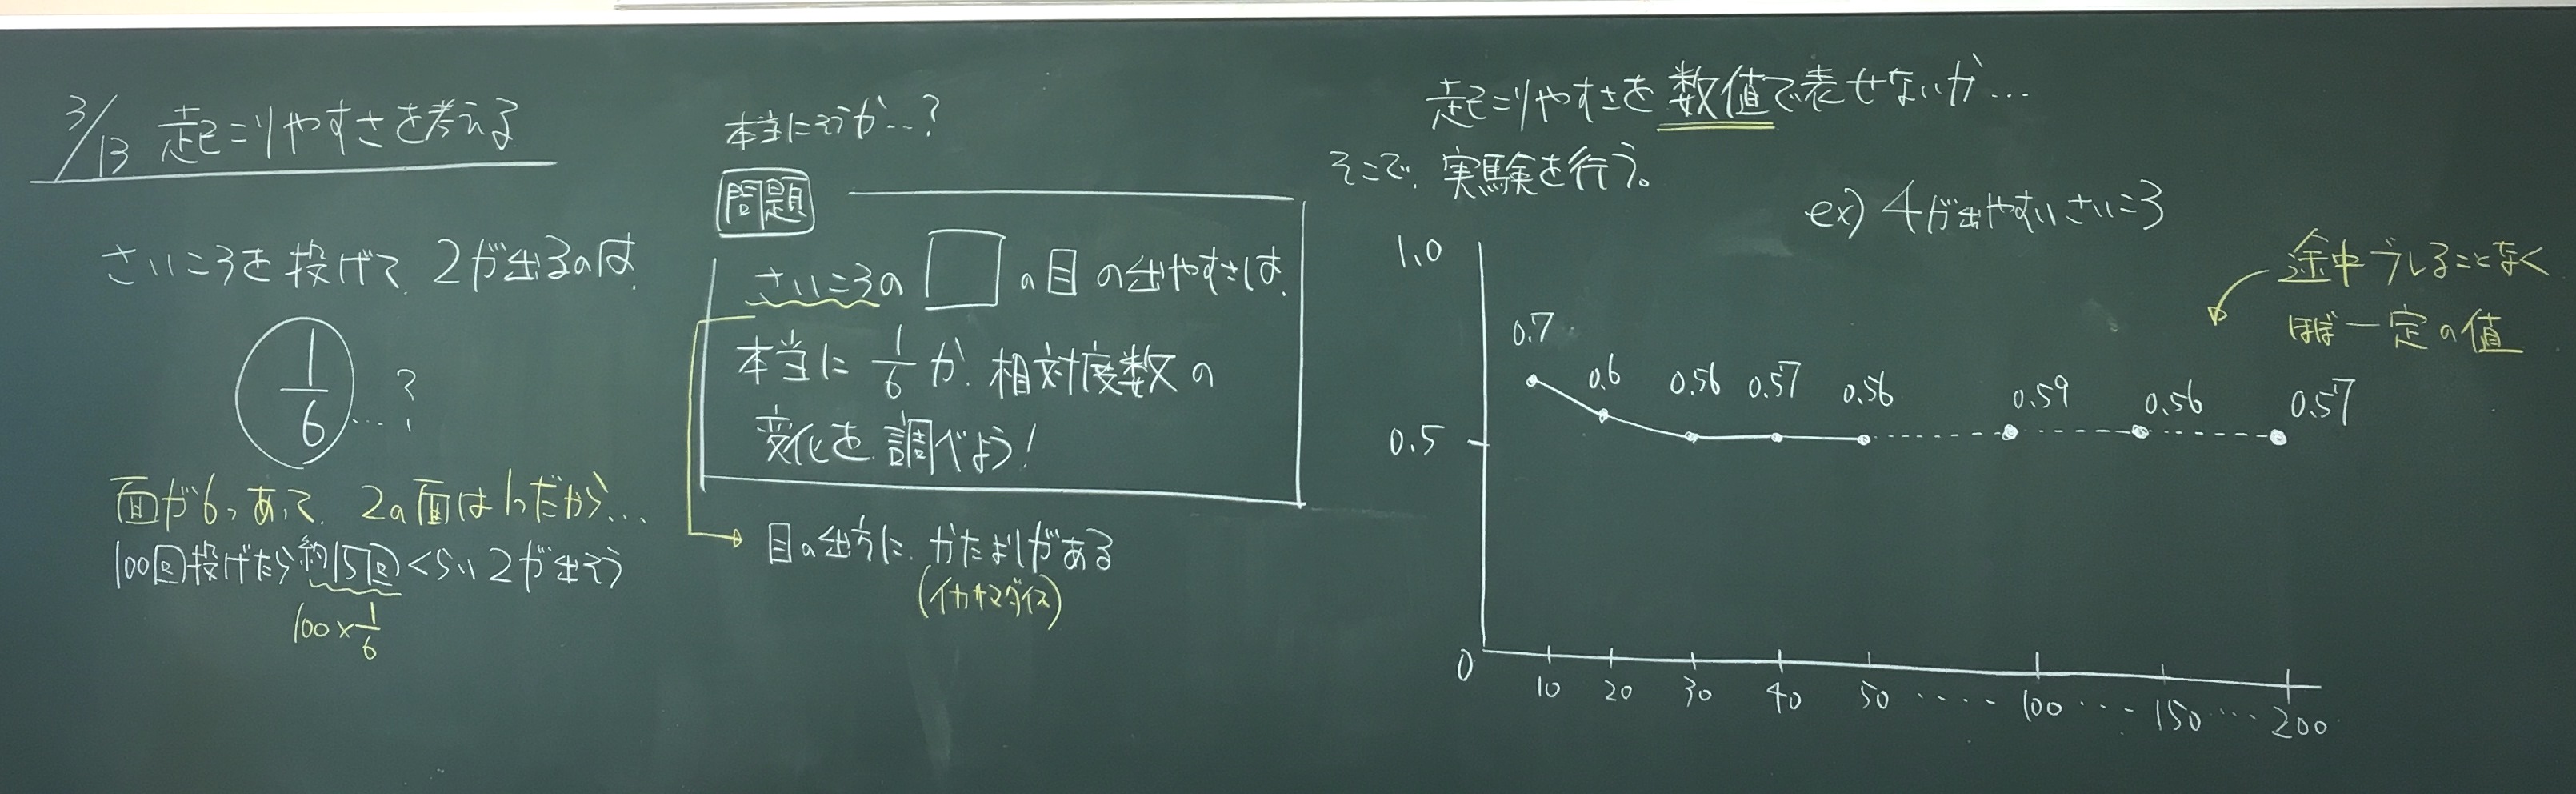 3/13 起こりやすさを考える
さいころを投げて、2が出るのは、
1/6 …?
面が6つあって、2の面は1つだから…
100回投げたら約15回くらい2が出そう
100×1/6
本当にそうか…?
問題
さいころの□の目の出やすさは、
本当に1/6か、相対度数の
変化を調べよう!
目の出方に、かたよりがある
(イカサマダイス)
起こりやすさを数値で表せないか…
そこで、実験を行う。
ex) 4が出やすいさいころ
途中ブレることなく
ほぼ一定の値
1.0
0.7
0.6 0.56 0.57 0.56 0.59 0.56 0.57
0.5
0
10 20 30 40 50 ‥‥ 100 ‥‥ 150 ‥‥ 200